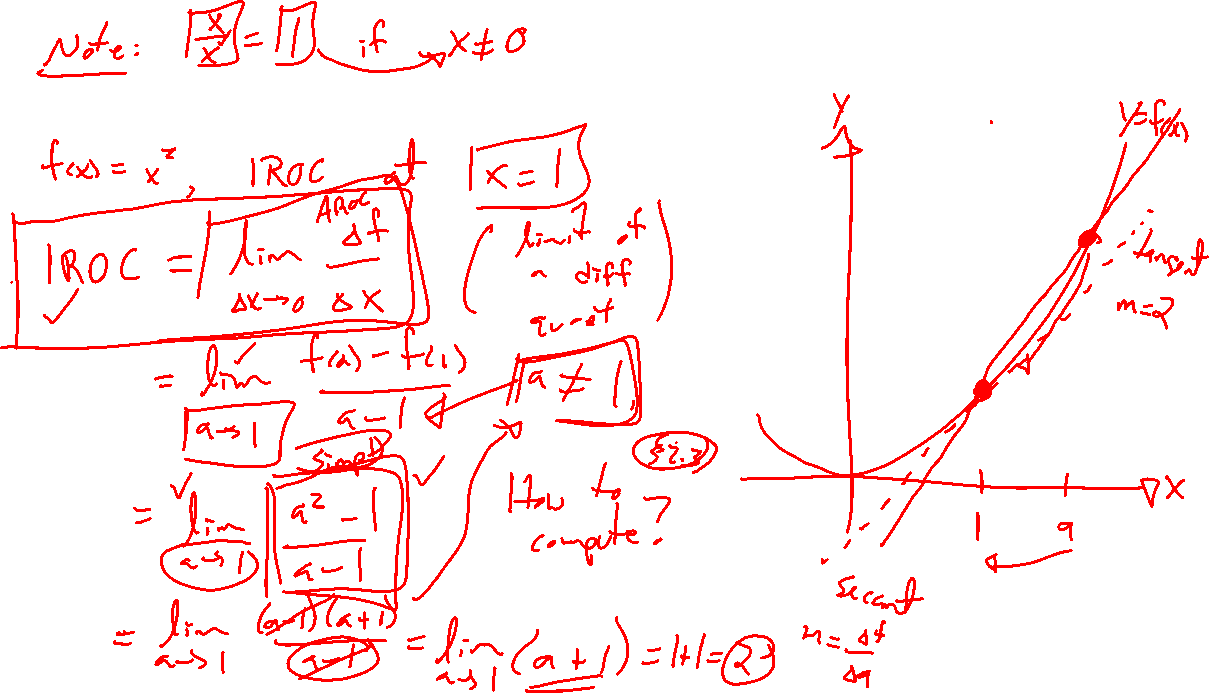 Note: x/x = 1 if x ≠ 0
f(x) = x², IROC at x = 1
IROC = lim Δx→0 Δf/Δx
AROC
(limit of
a diff
quot)
= lim a→1 f(a) - f(1) / a - 1
a ≠ 1
simplify
= lim a→1 a² - 1 / a - 1
How to
compute?
= lim a→1 (a-1)(a+1) / a-1 = lim a→1 (a+1) = 1+1 = 2
Y
y=f(x)
tangent
m=2
X
1 a
secant
m = Δf/Δa